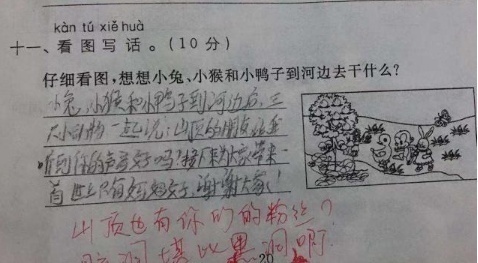 kàn tú xiě huà
十一、看图写话。(10分)
仔细看图,想想小兔、小猴和小鸭子到河边去干什么?
小兔、小猴和小鸭子到河边后,三
只小动物一起说:山顶的朋友你看
听到我的声音好吗?接下来为大家带来一
首世上只有妈妈好,谢谢大家!
山顶也有你们的粉丝?
脑洞堪比黑洞啊
20